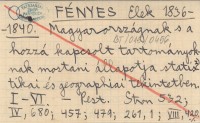 FÉNYES Elek 1836-
-1840. Magyarországnak s a
hozzá kapcsolt tartományok-
nak mostani állapotja statis-
tikai és geographiai tekintetben
I-VI - Pest.
IV, 680; 457; 479; 261, 1; VIII